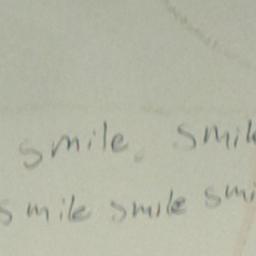 smile, smil
smile smile smi